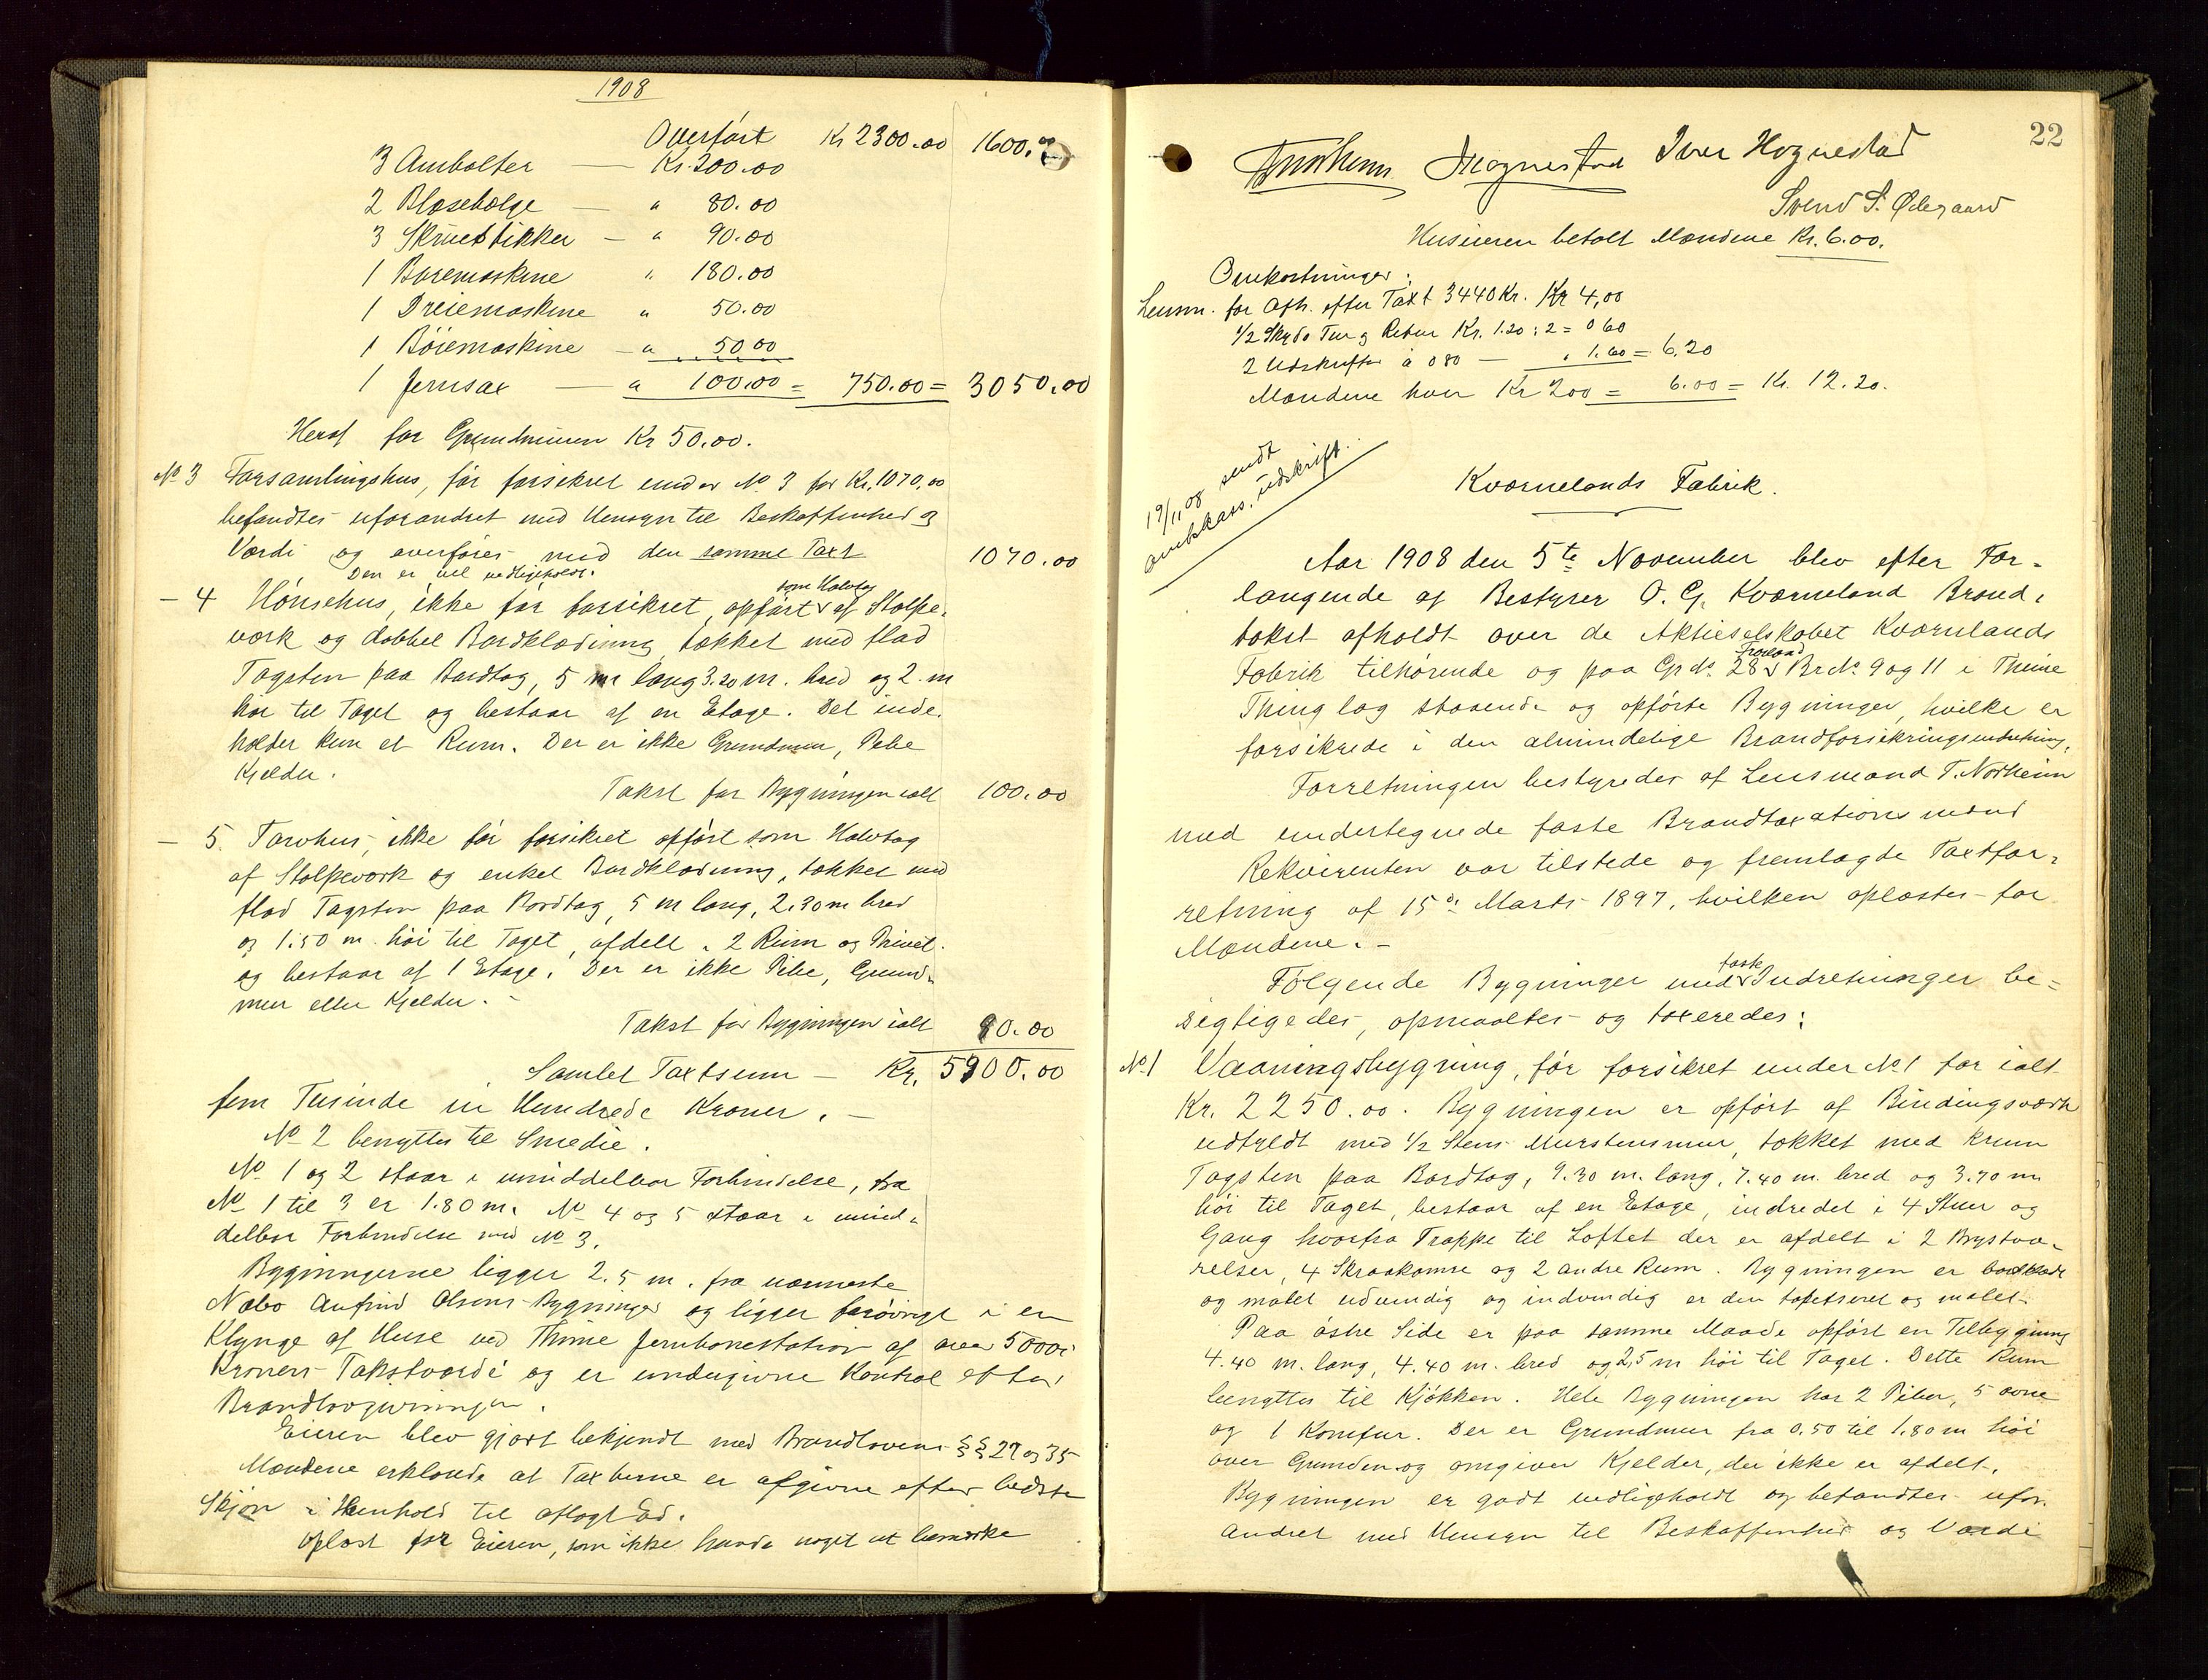 1908
Overført Kr 2300.00 1600.00
3 Ambolter — Kr. 200.00
2 Blæsebælge — " 80.00
3 Skruestikker — " 90.00
1 Boremaskine " 180.00
1 Dreiemaskine " 50.00
1 Böiemaskine — " 50 00
1 Jernsax — " 100.00 = 750.00 = 3050.00
Heraf for Grundmuren Kr 50.00.
No 3 Forsamlingshus, før forsikret under No 3 for Kr. 1070.00
befandtes uforandret med Hensyn til Beskaffenhed og
Værdi og overføres med den samme Taxt 1070.00
Den er vel vedligeholdt.
— 4 Hönsehus, ikke før forsikret, opført som Halvtag af Stolpe-
værk og dobbel Bordklædning, tækket med flad
Tagsten paa Bordtag, 5 m lang 3.20 m. bred og 2 m
høi til Taget og bestaar af en Etage. Det inde-
holder kun et Rum. Der er ikke Grundmur, Pibe
Kjelder.
Takst for Bygningen ialt 100.00
— 5. Torvhus, ikke før forsikret opført som Halvtag
af Stolpeværk og enkel Bordklædning, tækket med
flad Tagsten paa Bordtag, 5 m lang, 2.30 m bred
og 1.50 m. høi til Taget, afdelt i 2 Rum og Privet.
og bestaar af 1 Etage. Der er ikke Pibe, Grund-
mur eller Kjelder. –
Takst for Bygningen ialt 80.00
Samlet Taxtsum — Kr. 5900.00
fem Tusinde ni Hundrede Kroner. —
No 2 benyttes til Smedie.
No 1 og 2 staar i umiddelbar Forbindelse, fra
No 1 til 3 er 1.80 m. No 4 og 5 staar i umid-
delbar Forbindelse med No 3.
Bygningerne ligger 2.5 m. fra nærmeste
Nabo Anfind Olsens Bygninger og ligger forøvrigt i en
Klynge af Huse ved Thime Jernbanestation af over 5000
Kroners Takstværdi og er undergivne Kontrol efter
Brandlovgivningen.
Eieren blev gjort bekjendt med Brandlovens §§ 27 og 35
Mændene erklærede at Taxterne er afgivne efter bedste
Skjøn i Henhold til aflagt Ed.
Oplæst for Eieren, som ikke havde noget at bemærke
22
Iver Hognestad
Svend S. Ødegaard
Huseieren betalt Mændene Kr. 6.00.
Omkostninger:
Lensm. for Afh. efter Taxt 3440 Kr. Kr 4,00
1/2 Skyds Tur og Retur Kr. 1.20 : 2 = 0 60
2 Udskrifter à 0 80 — " 1.60 = 6.20
Mændene hver Kr 2 00 = 6.00 = Kr. 12.20.
19/11 08 sendt
brandkass. udskrift.
Kværnelands Fabrik.
Aar 1908 den 5te November blev efter For-
langende af Bestyrer O. G. Kværneland Brand-
takst afholdt over de Aktieselskabet Kværnelands
Fabrik tilhørende og paa Gr. No. 28 Frøiland Br. No. 9 og 11 i Thime
Thinglag staaende og opførte Bygninger, hvilke er
forsikrede i den almindelige Brandforsikringsindretning.
Forretningen bestyredes af Lensmand T. Norheim
med undertegnede faste Brandtaxationsmænd
Rekvirenten var tilstede og fremlagde Taxtfor-
retning af 15de Marts 1897, hvilken oplæstes for
Mændene. –
Følgende Bygninger med faste Indretninger be-
sigtigedes, opmaaltes og taxeredes:
No 1 Vaaningsbygning, før forsikret under No 1 for ialt
Kr. 2250.00. Bygningen er opført af Bindingsværk
udfyldt med 1/2 Stens Murstensmur, tækket med krum
Tagsten paa Bordtag, 9.30 m. lang, 7.40 m. bred og 3.70 m
høi til Taget, bestaar af en Etage, indredet i 4 Stuer og
Gang hvorfra Trappe til Loftet der er afdelt i 2 Brystvæ-
relser, 4 Skraakamre og 2 andre Rum. Bygningen er bordklædt
og malet udvendig og indvendig er den tapetseret og malet.
Paa østre Side er paa samme Maade opført en Tilbygning
4.40 m. lang, 4.40 m. bred og 2,5 m høi til Taget. Dette Rum
benyttes til Kjøkken. Hele Bygningen har 2 Piber, 5 ovne
og 1 Komfur. Der er Grundmur fra 0.50 til 1.80 m høi
over Grunden og omgiver Kjelder, der ikke er afdelt.
Bygningen er godt vedligeholdt og befandtes ufor-
andret med Hensyn til Beskaffenhed og Værdi